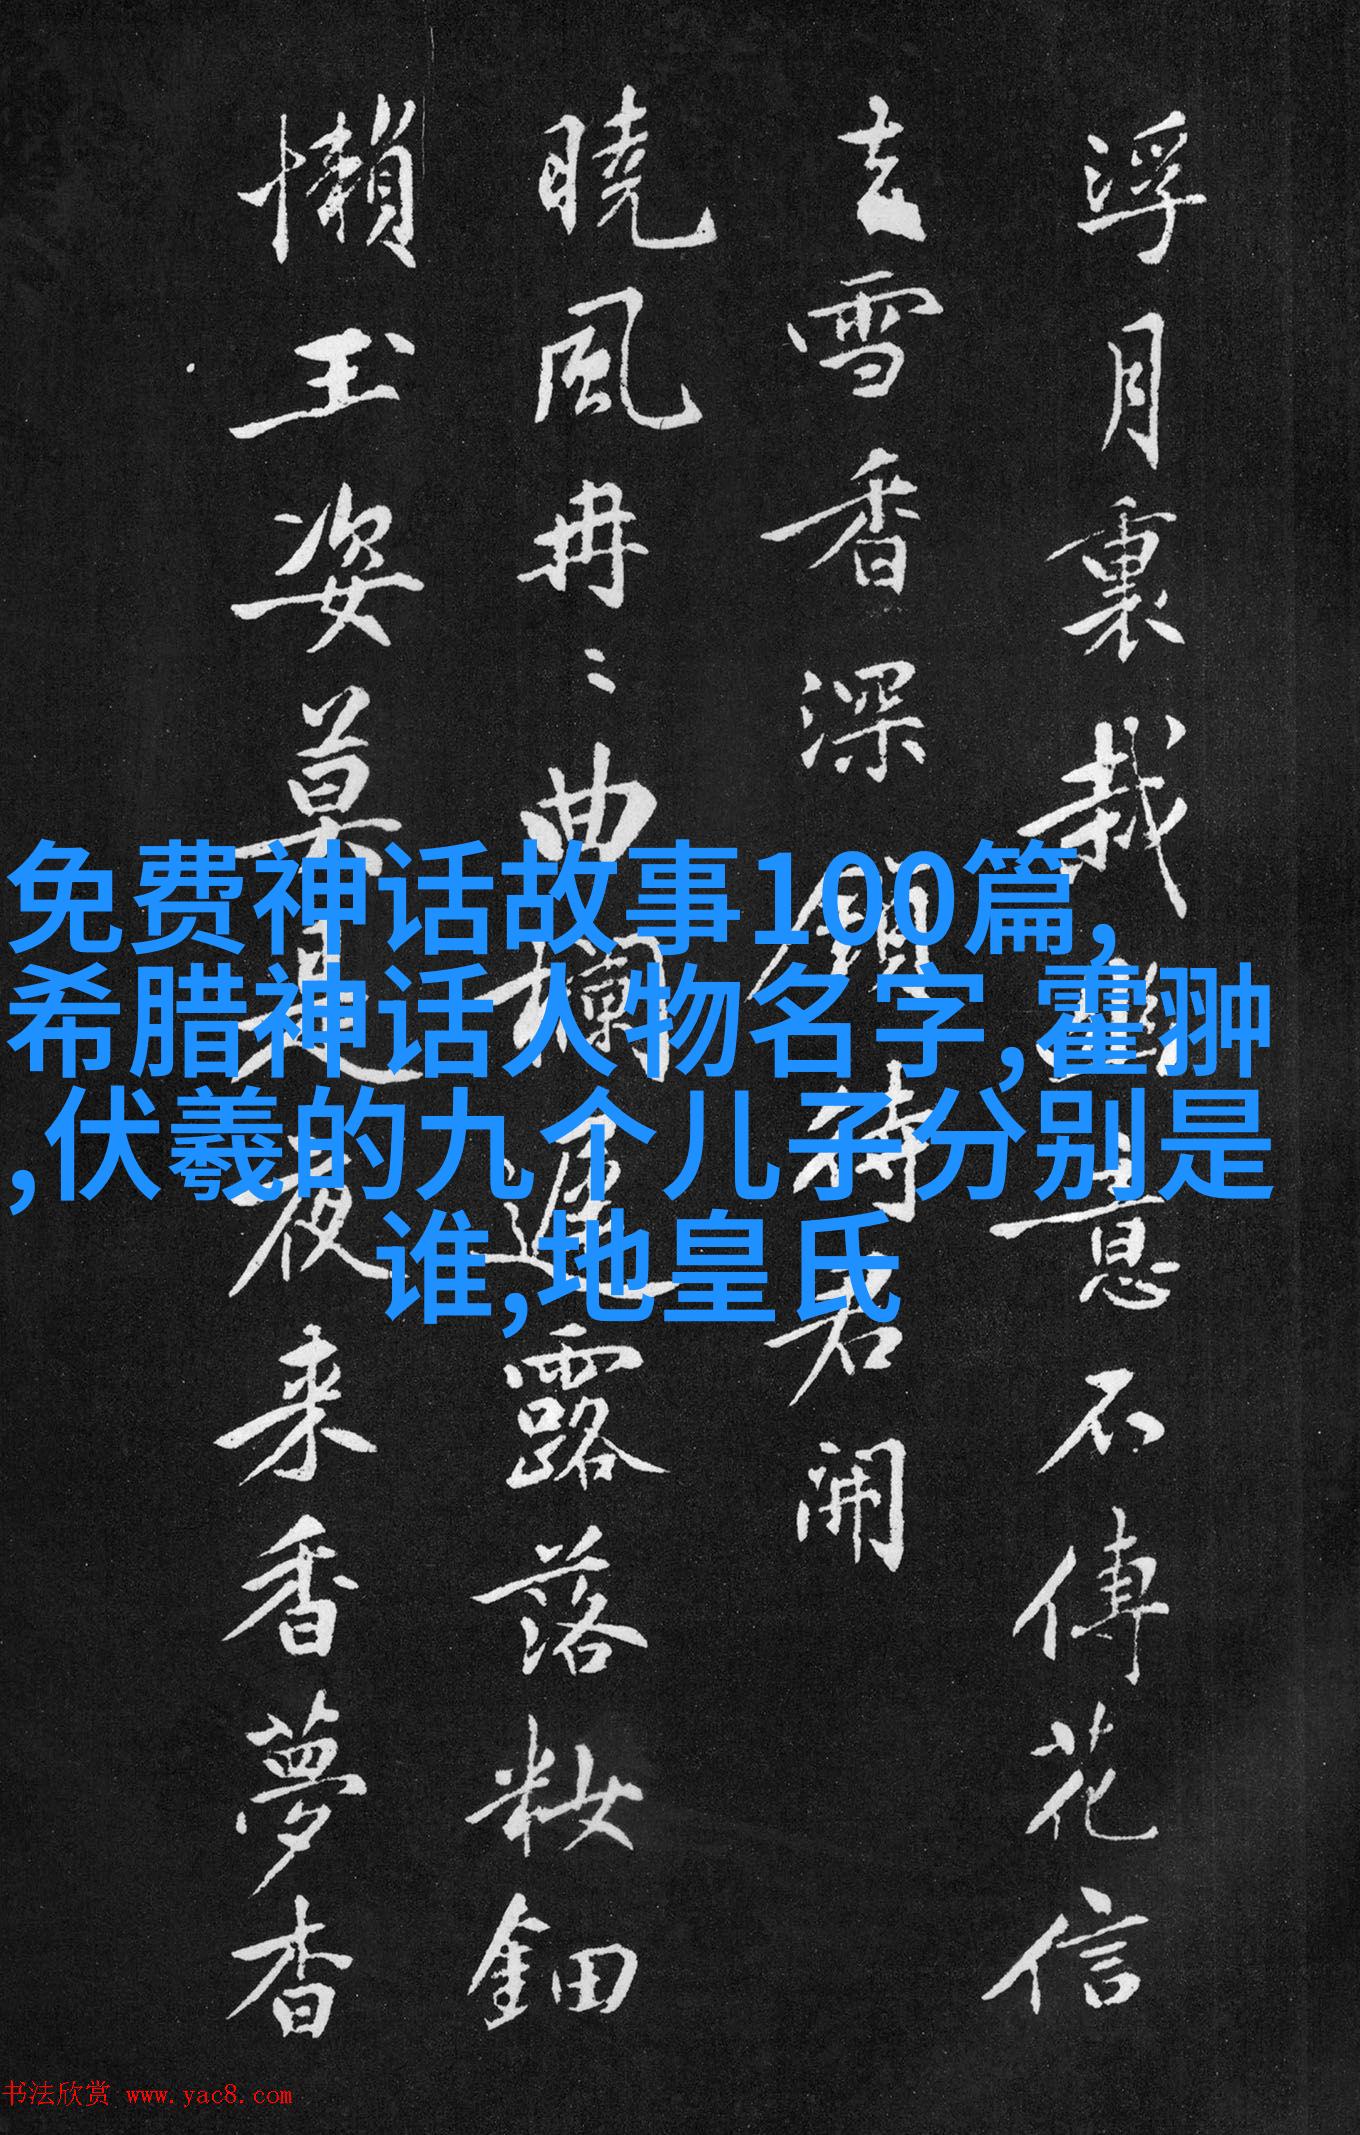 浮月裏栽幽意不傳花信
去雪香深鎖待君開
曉風冉〻曲欄遲露落粧鈿
懶玉姿莫是夜来香夢杳
免费神话故事100篇,
希腊神话人物名字,霍翀
,伏羲的九个儿子分别是
谁,地皇氏
书法欣赏 www.yac8.com